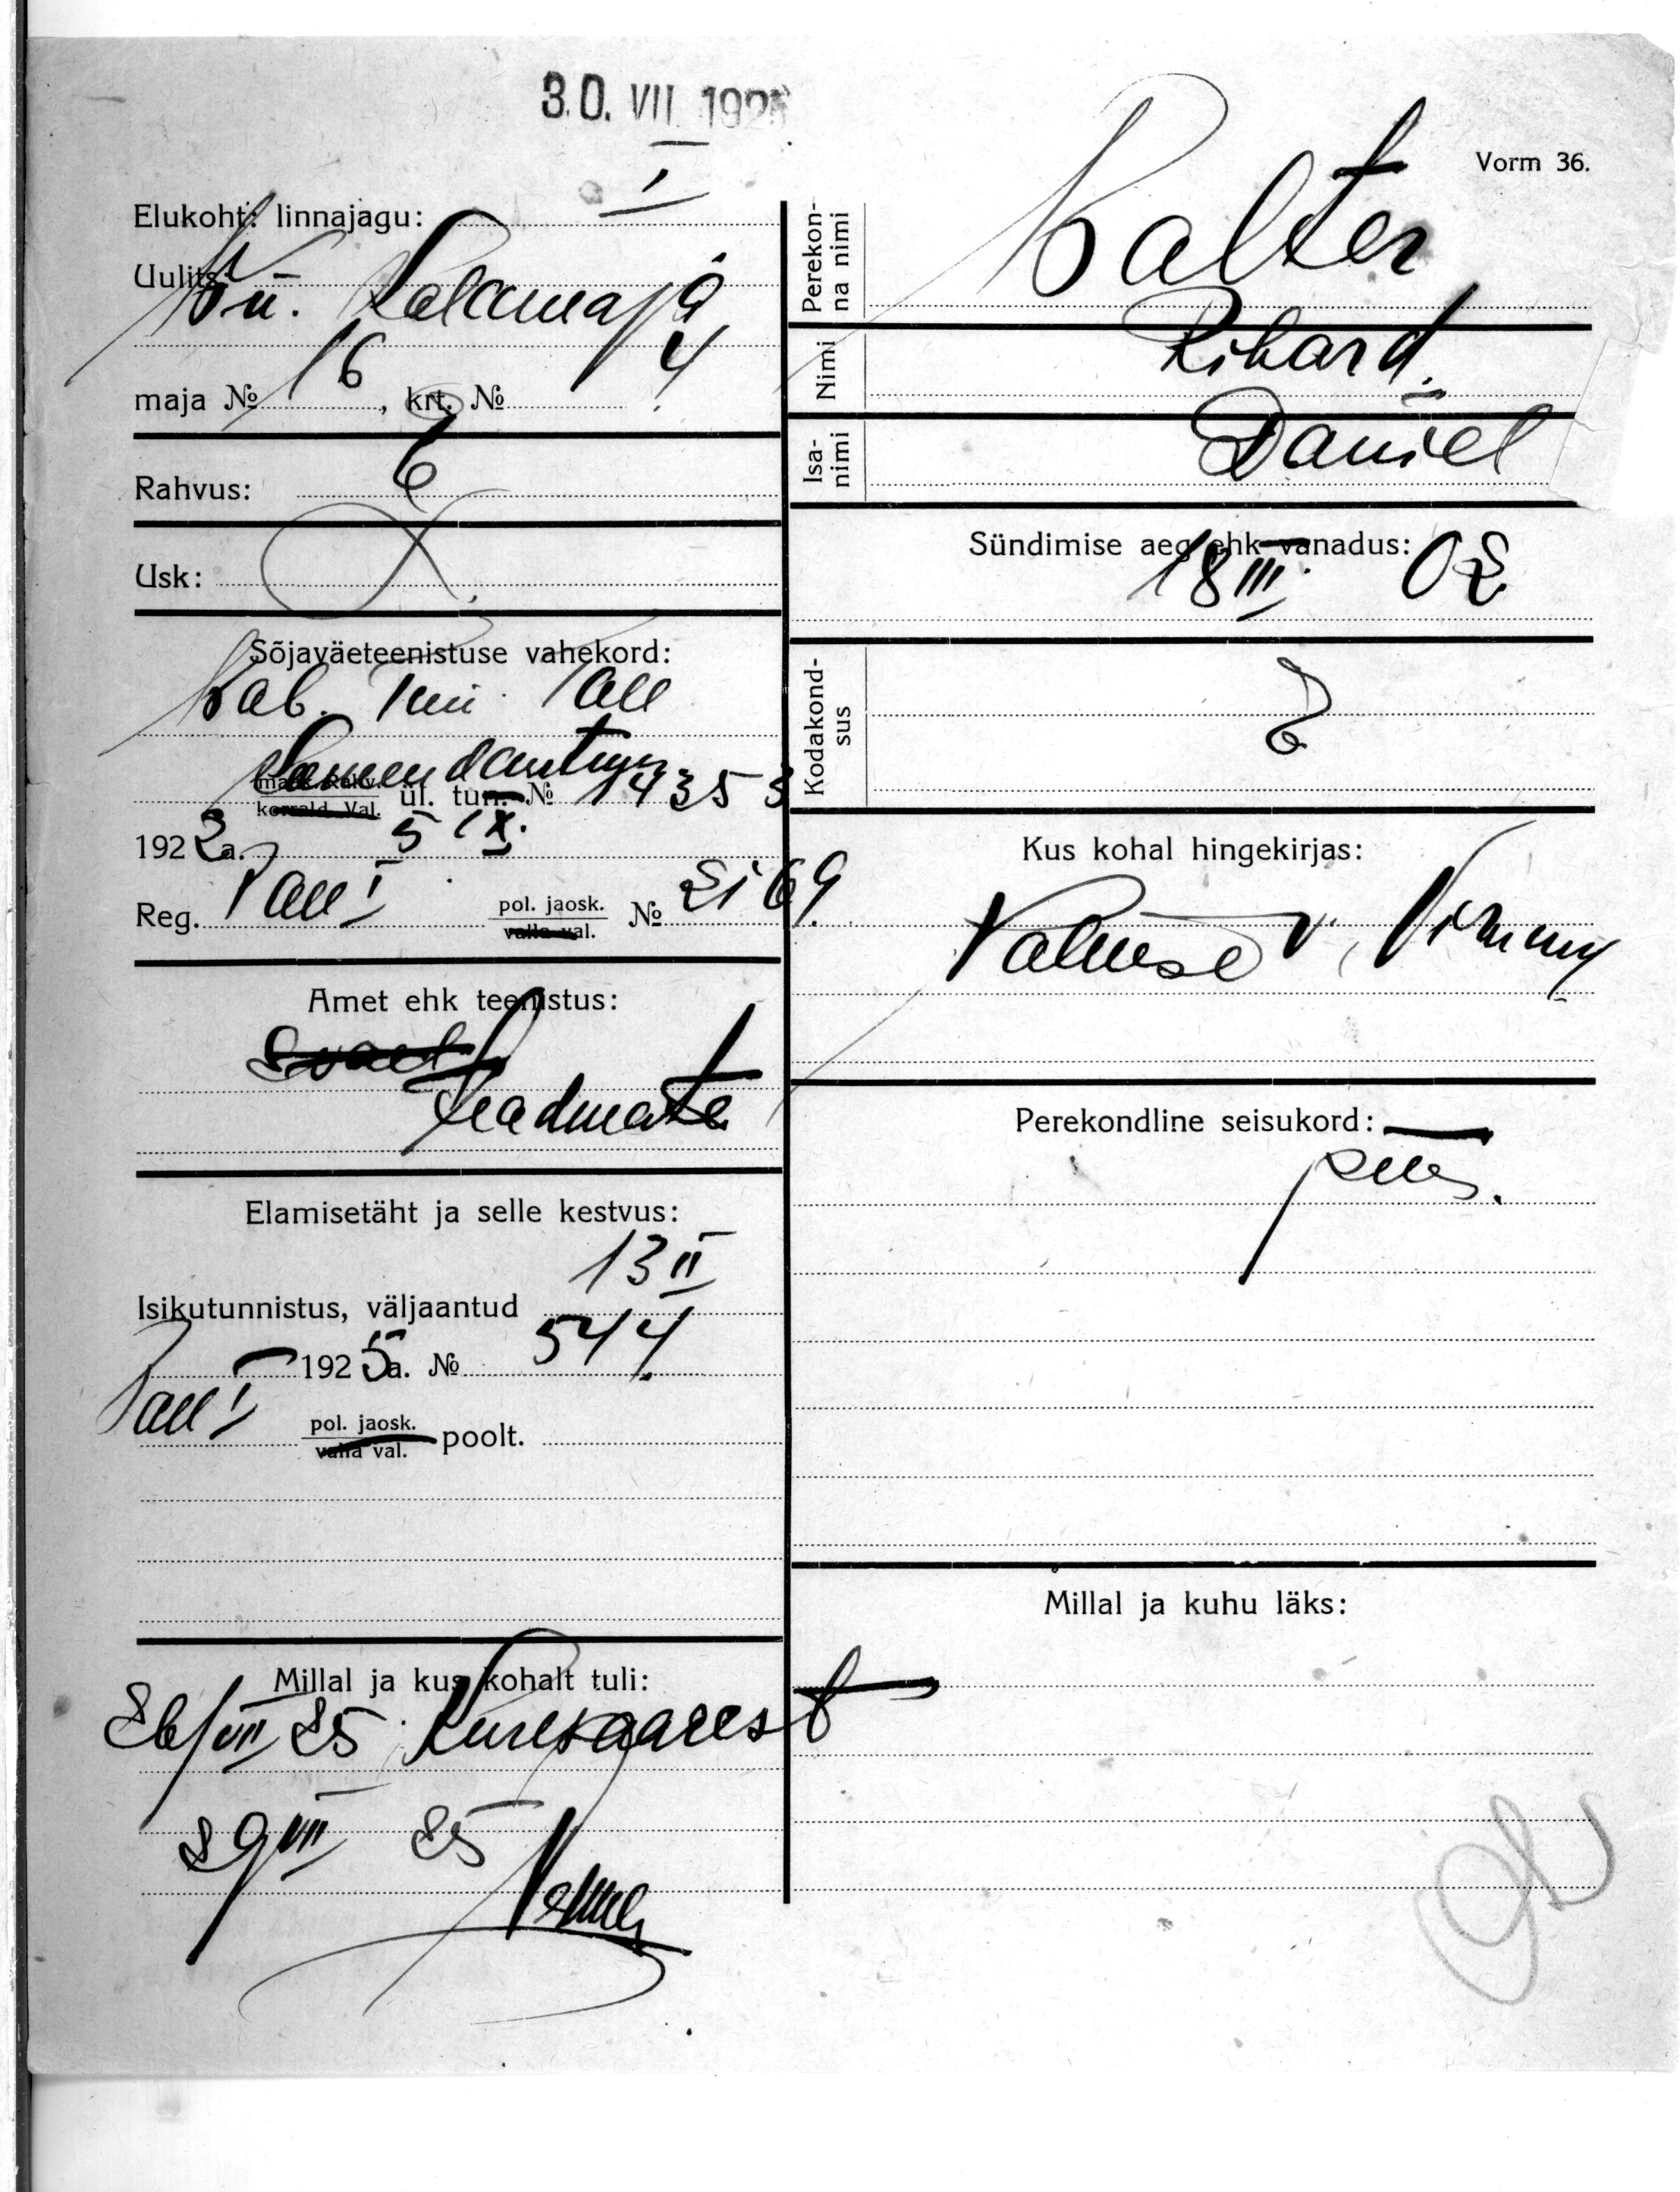 30. VII 1925
I
Vorm 36.
Elukoht: linnajagu:
Uulits: Vä. Kalamaja
maja № 16, krt. № 4
Rahvus: E
Usk:
Sõjaväeteenistuse vahekord:
Vab. Tun. Tall
Komendantuur
maak. Rahv.
korrald. Val. ül. tun. № 14353
1922 a. 5 IX.
Reg. Tall I pol. jaosk. № 2169.
valla val.
Amet ehk teenistus:
teadmata
Elamisetäht ja selle kestvus:
13 II
Isikutunnistus, väljaantud
1925 a. № 544.
Tall I pol. jaosk. poolt.
valla val.
Millal ja kus kohalt tuli:
26/VII 25 Kuresaarest
29 VII 25
Perekon-
na nimi
Kalter
Nimi
Rihard.
Isa-
nimi
Daniel
Sündimise aeg ehk vanadus:
18 III. 02
Kodakond-
sus
E
Kus kohal hingekirjas:
Palmse v, Virum
Perekondline seisukord:
Millal ja kuhu läks: